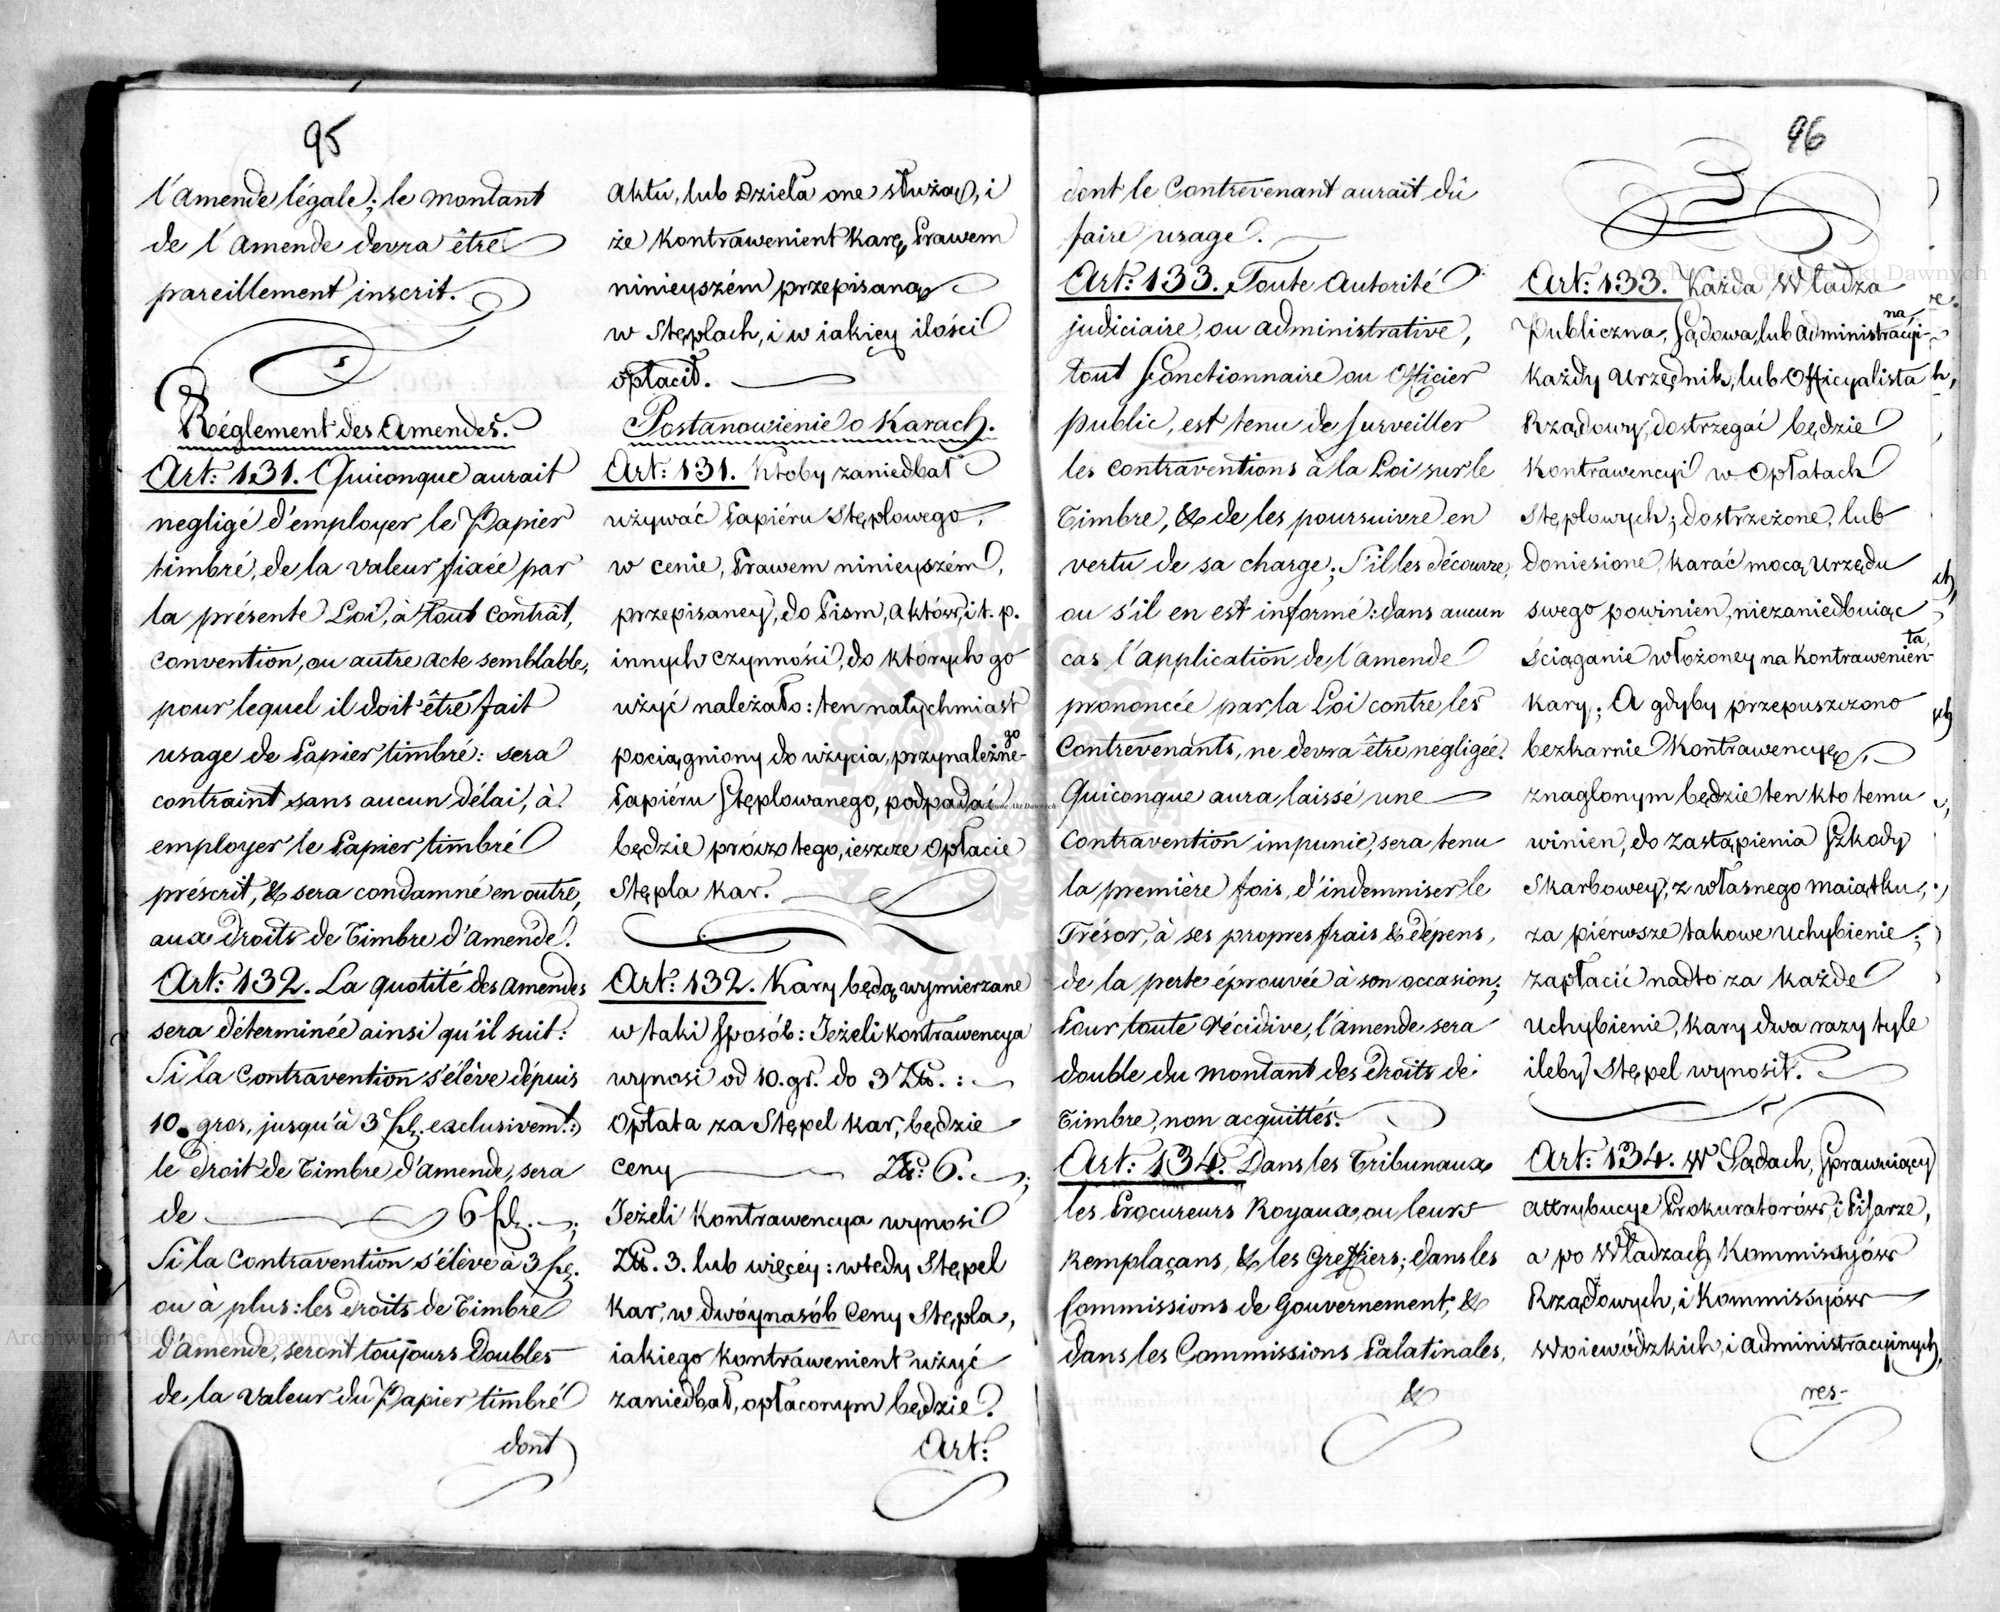 95
l'amende légale; le montant
de l'amende devra être
pareillement inscrit.
Réglement des Amendes.
Art: 131. Quiconque aurait
negligé d'employer le Papier
timbré, de la valeur fixée par
la présente Loi, à tout Contrât,
Convention, ou autre acte semblable,
pour lequel il doit être fait
usage de Papier timbré: sera
contraint sans aucun délai, à
employer le Papier timbré
préscrit, & sera condamné en outre,
aux Droits de Timbre d'amende.
Art: 132. La quotité des amendes
sera déterminée ainsi qu'il suit:
Si la Contravention s'élève dépuis
10. gros, jusqu'à 3 fl. exclusivemt.:
le Droit de Timbre d'amende, sera
de 6 fl. ;
Si la Contravention s'élève à 3 fl.
ou à plus: les Droits de Timbre
d'amende, seront toujours Doubles
de la valeur du Papier timbré
dont
Aktu, lub Dzieła one służą, i
że Kontrawenient Karę, Prawem
ninieyszém przepisaną
w Stęplach, i w iakiéy ilości
opłacił.
Postanowienie o Karach.
Art: 131. Ktoby zaniedbał
używać Papiéru Stęplowego,
w cenie, Prawem ninieyszém,
przepisaney, do Pism, Aktów, i t. p.
innych czynności, do których go
użyć należało: ten natychmiast
pociągniony do użycia, przynależne-
go
Papiéru Stęplowanego, podpadać
będzie prócz tego, ieszcze Opłacie
Stępla kar.
Art: 132. Kary będą wymierzane
w taki sposób: Jeżeli kontrawencya
wynosi od 10. gr. do 3 Zł. :
Opłata za Stępel kar, będzie
Ceny Zł: 6. ;
Jeżeli Kontrawencya wynosi
Zł. 3. lub więcéy: wtedy Stępel
Kar, w dwóynasób Ceny Stępla,
iakiego Kontrawenient użyć
zaniedbał, opłaconym będzie.
Art:
96
dont le Contrevenant aurait dû
faire usage.
Art: 133. Toute Autorité
judiciaire, ou administrative,
tout Fonctionnaire ou Officier
public, est tenu de surveiller
les contraventions à la Loi sur le
Timbre, & de les poursuivre en
vertu de sa charge; S'il les découvre,
ou s'il en est informé: dans aucun
cas l'application de l'amende
prononcée par la Loi contre les
Contrevenants, ne devra être négligée.
Quiconque aura laissé une
Contravention impunie, sera tenu
la première fois, d'indemniser le
Trésor, à ses propres frais & dépens,
de la perte éprouvée à son occasion;
Pour toute récidive, l'amende sera
double du montant des Droits de
Timbre, non acquittés.
Art: 134. Dans les Tribunaux
les Procureurs Royaux, ou leurs
Remplaçans, & les Greffiers; dans les
Commissions de Gouvernement, &
dans les Commissions Palatinales,
&
Art: 133. Każda Władza
Publiczna, Sądowa, lub administracyj-
na,
każdy Urzędnik, lub Officyalista
Rządowy, dostrzegać będzie
Kontrawencyi w Opłatach
Stęplowych; dostrzeżone, lub
Doniesione, karać mocą Urzędu
swego powinien, niezaniedbuiąc
Ściąganie włożoney na Kontrawenien-
ta,
Kary; A gdyby przepuszczono
bezkarnie Kontrawencyę,
znaglonym będzie ten kto temu
winien, do zastąpienia Szkody
Skarbowey, z własnego maiątku,
za piérwsze takowe Uchybienie;
zapłacić nadto za każde
Uchybienie, kary dwa razy tyle
ileby Stępel wynosił.
Art: 134. W Sądach, sprawuiący
attrybucye Prokuratorów, i Pisarze,
a po Władzach Kommissyów
Rządowych, i Kommissyów
Woiewódzkich, i administracyinych,
res-
Archiwum Główne Akt Dawnych